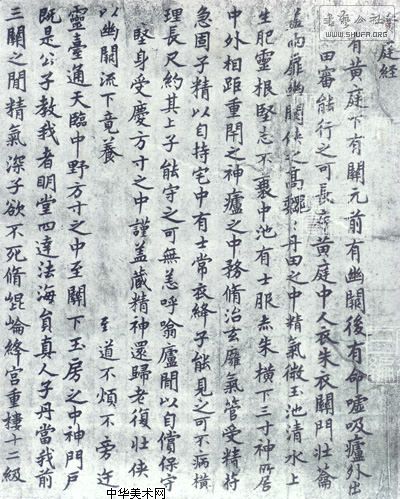 庭經
有黃庭下有關元前有幽關後有命噓吸廬外出
田審能行之可長存黃庭中人衣朱衣關門壯籥
兩扉幽關俠之高巍丹田之中精氣微玉池清水上
生肥靈根堅志不衰中池有士服赤朱橫下三寸神所居
中外相距重閇之神廬之中務脩治玄廱氣管受精符
急固子精以自持宅中有士常衣絳子能見之可不病橫
理長尺約其上子能守之可無恙呼噏廬間以自償保守
堅身受慶方寸之中謹蓋藏精神還歸老復壯俠
以幽關流下竟養 至道不煩不旁迕
靈臺通天臨中野方寸之中至關下玉房之中神門戶
既是公子教我者明堂四達法海員真人子丹當我前
三關之間精氣深子欲不死脩崐崘絳宮重樓十二級
WWW.SHUFA.ORG
中华美术网